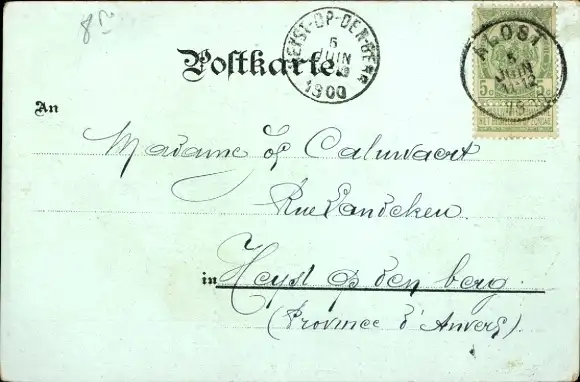 8
HEYST-OP-DEN-BERG
5
JUIN
1900
Postkarte.
ALOST
5
JUIN
5c 5c
An
Madame Calmvaert
Rue
in Heyst op den berg
(Province d'Anvers).